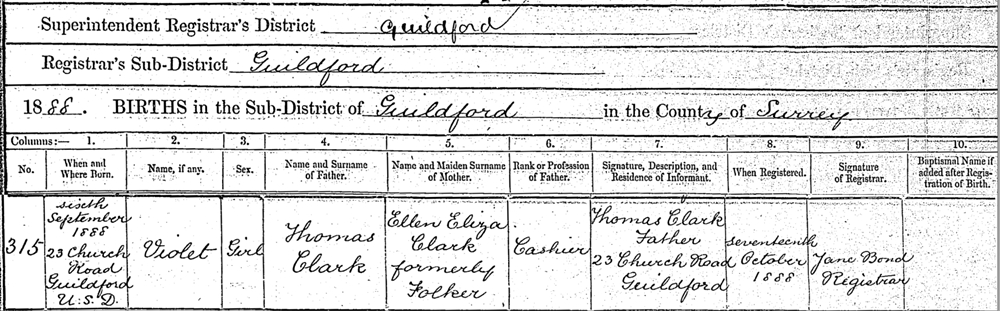 Superintendent Registrar's District Guildford
Registrar's Sub-District Guildford
1888. BIRTHS in the Sub-District of Guildford in the County of Surrey
Columns:— 1. 2. 3. 4. 5. 6. 7. 8. 9. 10.
No. When and Where Born. Name, if any. Sex. Name and Surname of Father. Name and Maiden Surname of Mother. Rank or Profession of Father. Signature, Description, and Residence of Informant. When Registered. Signature of Registrar. Baptismal Name if added after Registration of Birth.
315
sixth
September
1888
23 Church
Road
Guildford
U.S.D.
Violet
Girl
Thomas
Clark
Ellen Eliza
Clark
formerly
Folker
Cashier
Thomas Clark
Father
23 Church Road
Guildford
seventeenth
October
1888
Jane Bond
Registrar